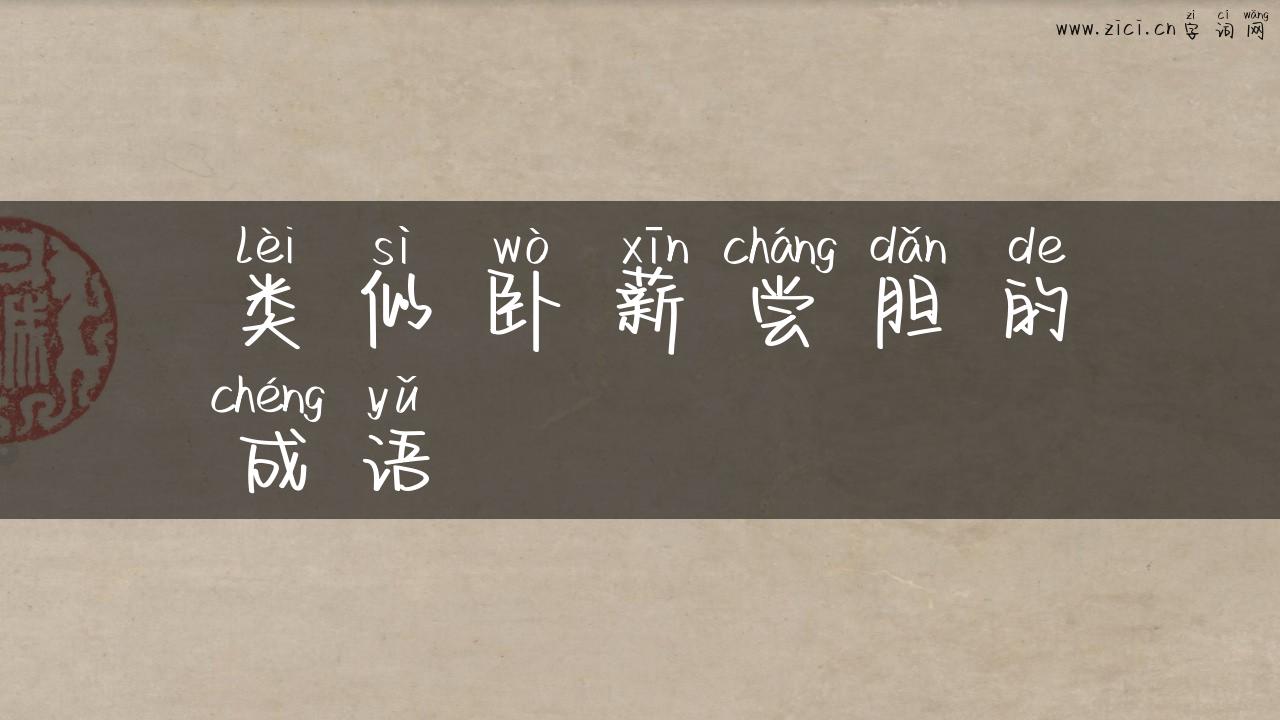 zì cí wǎng
www.zici.cn 字词网
lèi sì wò xīn cháng dǎn de
类似卧薪尝胆的
chéng yǔ
成语